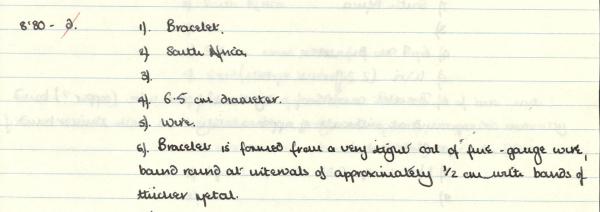 8'80 - 2. 1). Bracelet.
2) South Africa
3).
4). 6.5 cm diameter.
5). Wire.
6). Bracelet is formed from a very tight coil of fine-gauge wire,
bound round at intervals of approximately 1/2 cm with bands of
thicker metal.